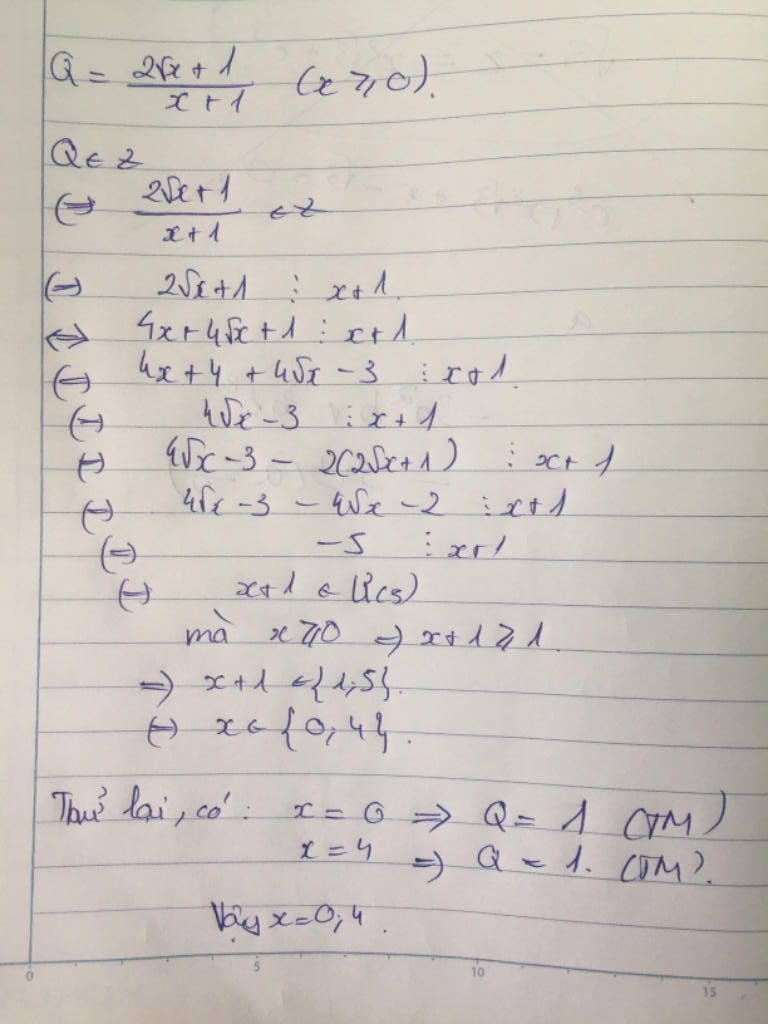 Q = (2√x + 1)/(x + 1) (x ≥ 0).
Q ∈ Z
⇔ (2√x + 1)/(x + 1) ∈ Z
⇔ 2√x + 1 ⋮ x + 1.
⇔ 4x + 4√x + 1 ⋮ x + 1.
⇔ 4x + 4 + 4√x - 3 ⋮ x + 1.
⇔ 4√x - 3 ⋮ x + 1
⇔ 4√x - 3 - 2(2√x + 1) ⋮ x + 1
⇔ 4√x - 3 - 4√x - 2 ⋮ x + 1
⇔ -5 ⋮ x + 1
⇔ x + 1 ∈ Ư(5)
mà x ≥ 0 ⇒ x + 1 ≥ 1.
⇒ x + 1 ∈ {1; 5}.
⇔ x ∈ {0; 4}.
Thử lại, có: x = 0 ⇒ Q = 1 (TM)
x = 4 ⇒ Q = 1. (TM).
Vậy x = 0, 4.
0 5 10 15